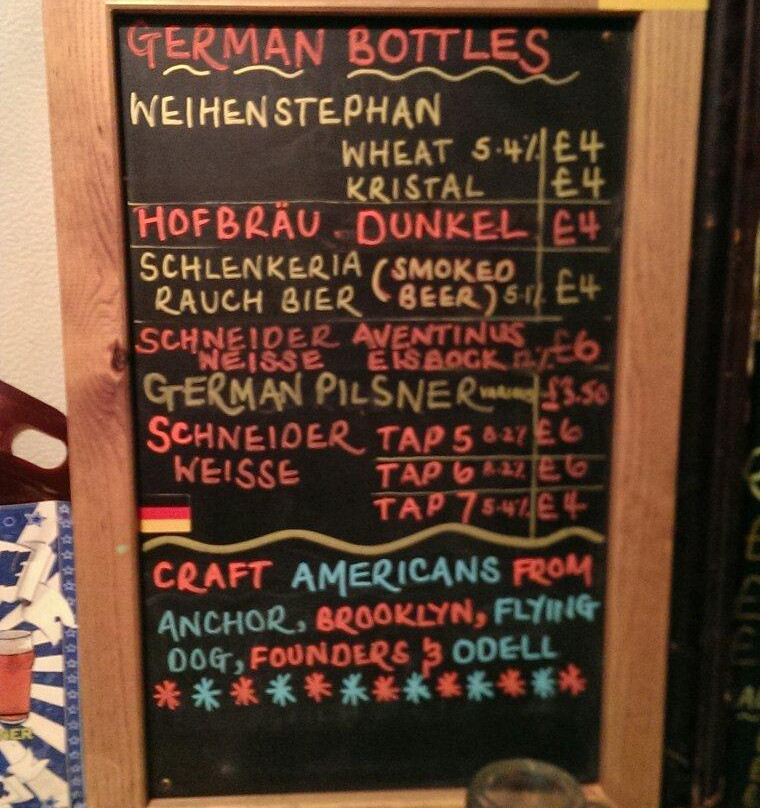 GERMAN BOTTLES
WEIHENSTEPHAN
WHEAT 5.4% £4
KRISTAL £4
HOFBRÄU - DUNKEL £4
SCHLENKERIA (SMOKED
RAUCH BIER BEER) 5.1% £4
SCHNEIDER AVENTINUS
WEISSE EISBOCK 12% £6
GERMAN PILSNER VARIOUS £3.50
SCHNEIDER TAP 5 8.2% £6
WEISSE TAP 6 8.2% £6
TAP 7 5.4% £4
CRAFT AMERICANS FROM
ANCHOR, BROOKLYN, FLYING
DOG, FOUNDERS & ODELL